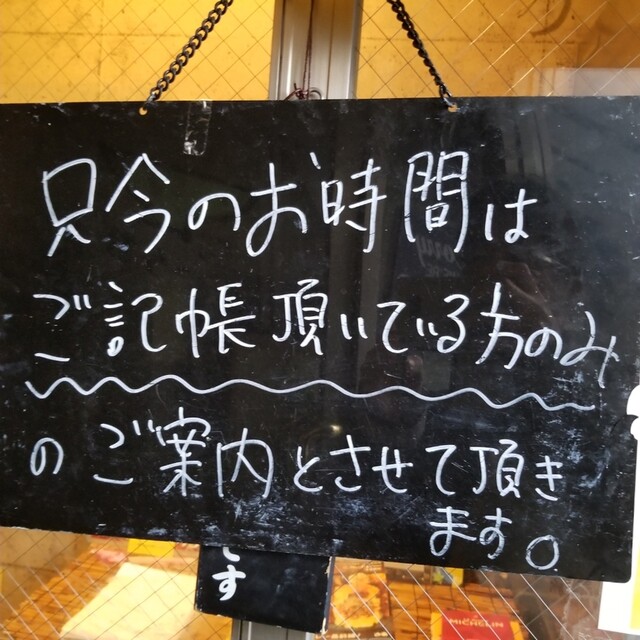 只今のお時間は
ご記帳頂いている方のみ
のご案内とさせて頂き
ます。
す
MICHELIN